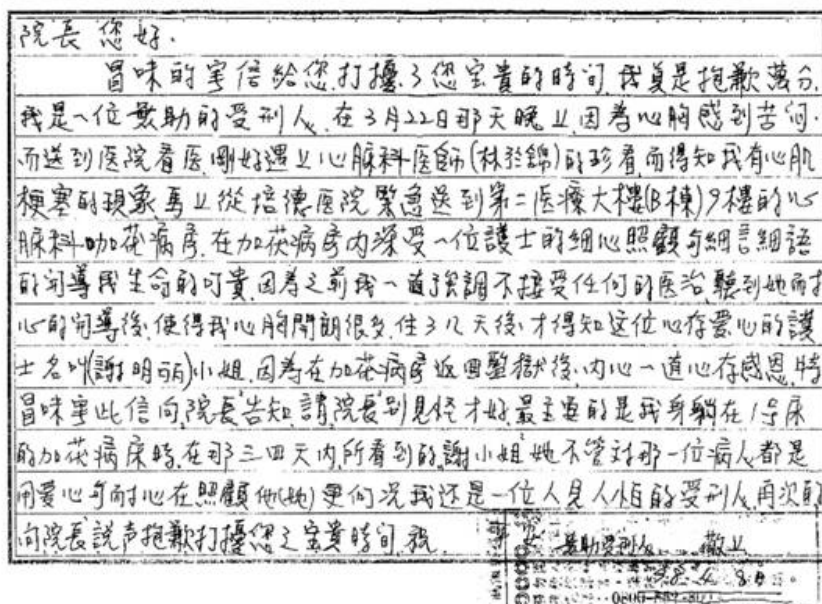 院長您好.
冒昧的寫信給您.打擾了您宝貴的時間.我真是抱歉萬分.
我是一位無助的受刑人.在3月22日那天晚上.因為心胸感到苦悶.
而送到医院看医.剛好遇上心臟科医師(林於錦)的診看.而得知我有心肌
梗塞的現象.馬上從培德医院緊急送到第二医療大樓(B棟)9樓的心
臟科.加花病房.在加花病房內深受一位護士的細心照顧与細言細語
的開導我生命的可貴.因為之前我一直強調不接受任何的医治.聽到她耐
心的開導後.使得我心胸開朗很多.住了几天後.才得知这位心存爱心的護
士名叫(謝明丽)小姐.因為在加花病房返回監獄後.內心一直心存感恩.特
冒昧寫此信向.院長.告知.請.院長.別見怪才好.最主要的是我身躺在1号床
的加花病床時.在那三四天內.所看到的.謝小姐.她不管対那一位病人都是
用爱心与耐心在照顧他(她)更何況我还是一位人見人怕的受刑人.再次的
向院長説声抱歉打擾您之宝貴時間.祝
無助受刑人 敬上